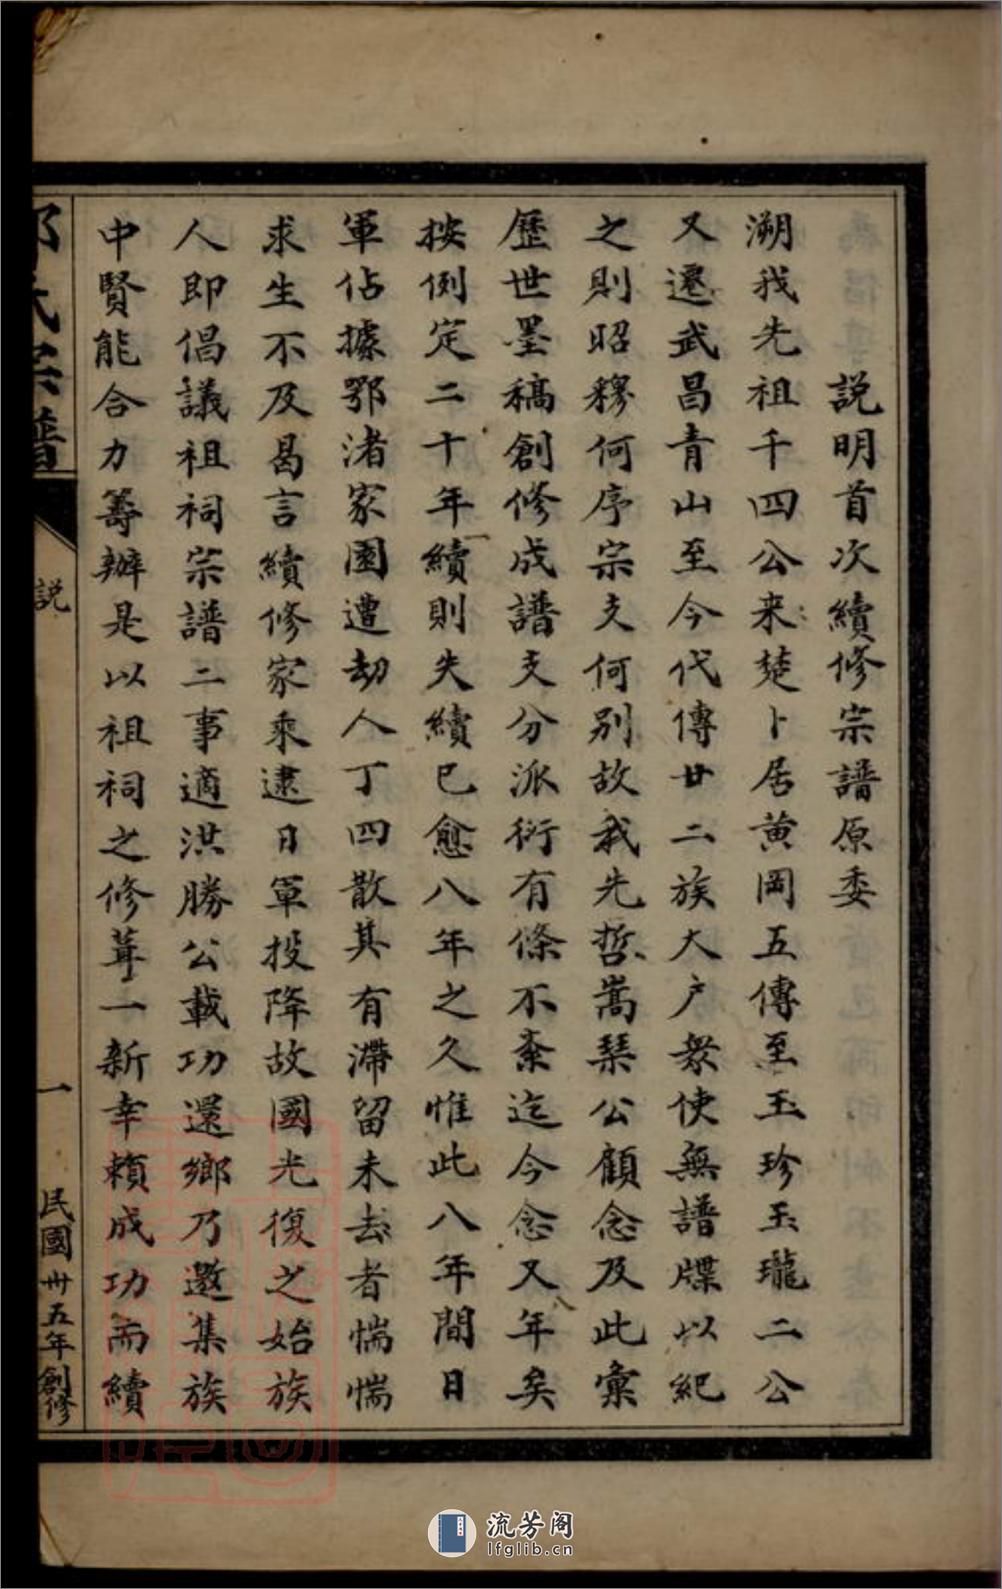 説明首次續修宗譜原委
溯我先祖千四公来楚卜居黄岡五傳至玉珍玉瓏二公
又遷武昌青山至今代傳廿二族大户衆使無譜牒以紀
之則昭穆何序宗支何别故我先哲嵩琹公顧念及此彙
歷世墨稿創修成譜支分派衍有條不紊迄今念又年矣
八
按例定二十年續則失續已愈八年之久惟此八年間日
一
軍佔據鄂渚家園遭劫人丁四散其有滯留未去者惴惴
求生不及曷言續修家乘逮日軍投降故國光復之始族
人即倡議祖祠宗譜二事適洪勝公載功還鄉乃邀集族
中賢能合力籌辦是以祖祠之修葺一新幸賴成功而續
氏宗譜
説
一
民國卅五年創修
流芳阁
lfglib.cn